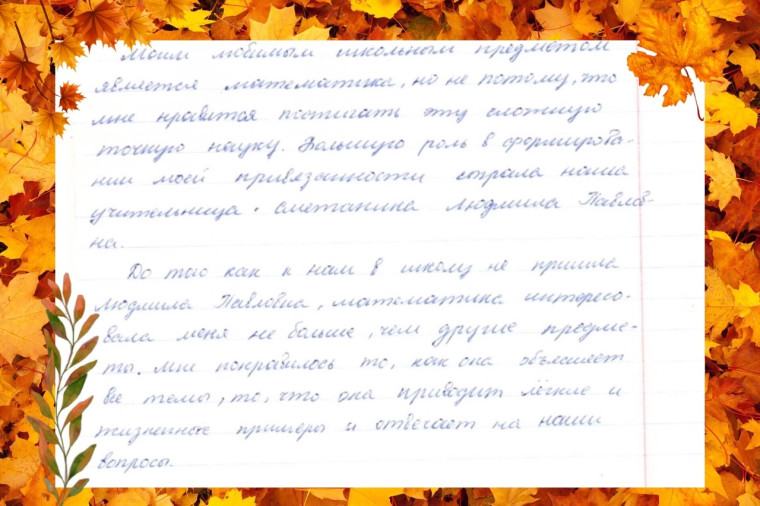 Моим любимым школьным предметом
является математика, но не потому, что
мне нравится постигать эту сложную
точную науку. Большую роль в формирова-
нии моей привязанности сыграла наша
учительница - Сметанина Людмила Павлов-
на.
До того как к нам в школу не пришла
Людмила Павловна, математика интересо-
вала меня не больше, чем другие предме-
ты. Мне понравилось то, как она объясняет
все темы, то, что она приводит лёгкие и
жизненные примеры и отвечает на наши
вопросы.